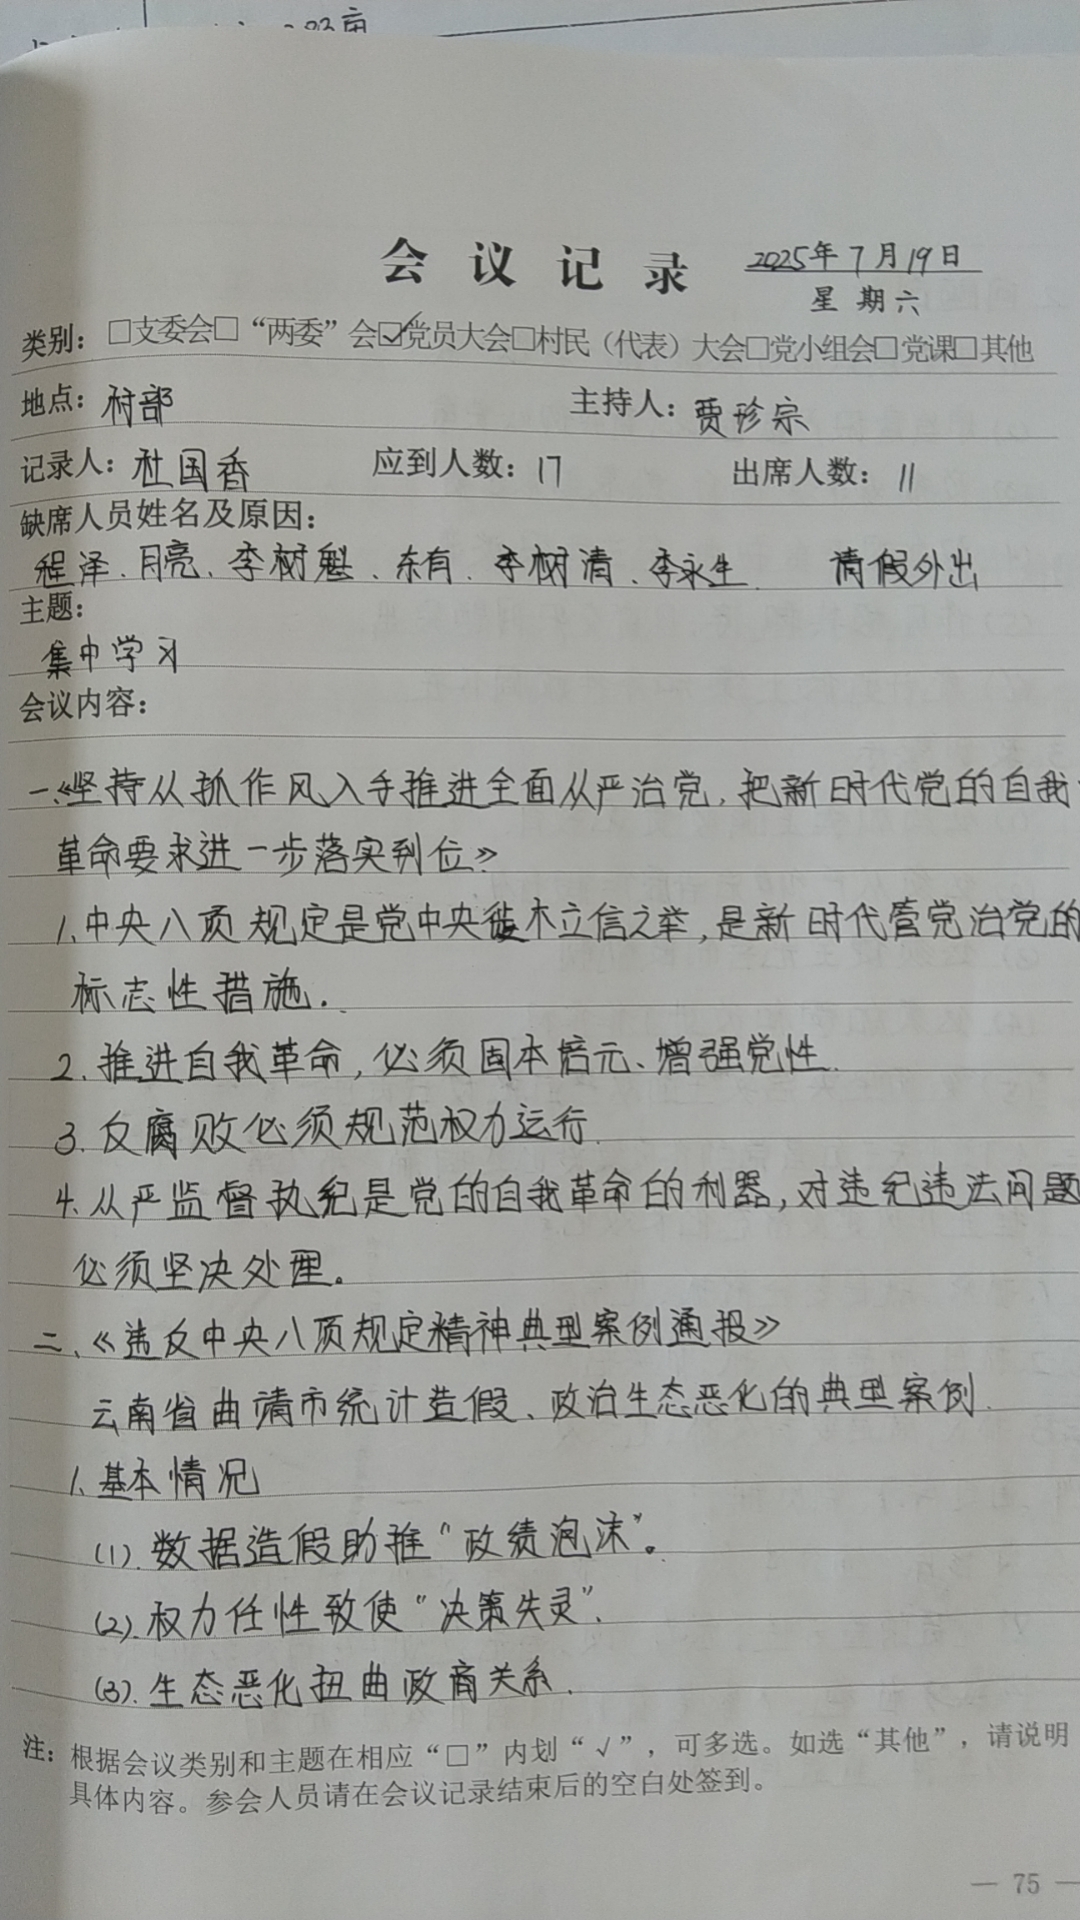 会议记录 2025年7月19日
星期六
类别：□支委会□“两委”会☑党员大会□村民（代表）大会□党小组会□党课□其他
地点：村部 主持人：贾珍宗
记录人：杜国香 应到人数：17 出席人数：11
缺席人员姓名及原因：
程泽、月亮、李树魁、东有、李树清、李永生. 请假外出
主题：
集中学习
会议内容：
一、《坚持从抓作风入手推进全面从严治党，把新时代党的自我
革命要求进一步落实到位》
1、中央八项规定是党中央徙木立信之举，是新时代管党治党的
标志性措施.
2、推进自我革命，必须固本培元、增强党性.
3、反腐败必须规范权力运行.
4、从严监督执纪是党的自我革命的利器，对违纪违法问题
必须坚决处理。
二、《违反中央八项规定精神典型案例通报》
云南省曲靖市统计造假、政治生态恶化的典型案例.
1、基本情况
(1).数据造假助推“政绩泡沫”。
(2).权力任性致使“决策失灵”.
(3).生态恶化扭曲政商关系.
注：根据会议类别和主题在相应“□”内划“√”，可多选。如选“其他”，请说明
具体内容。参会人员请在会议记录结束后的空白处签到。
— 75 —